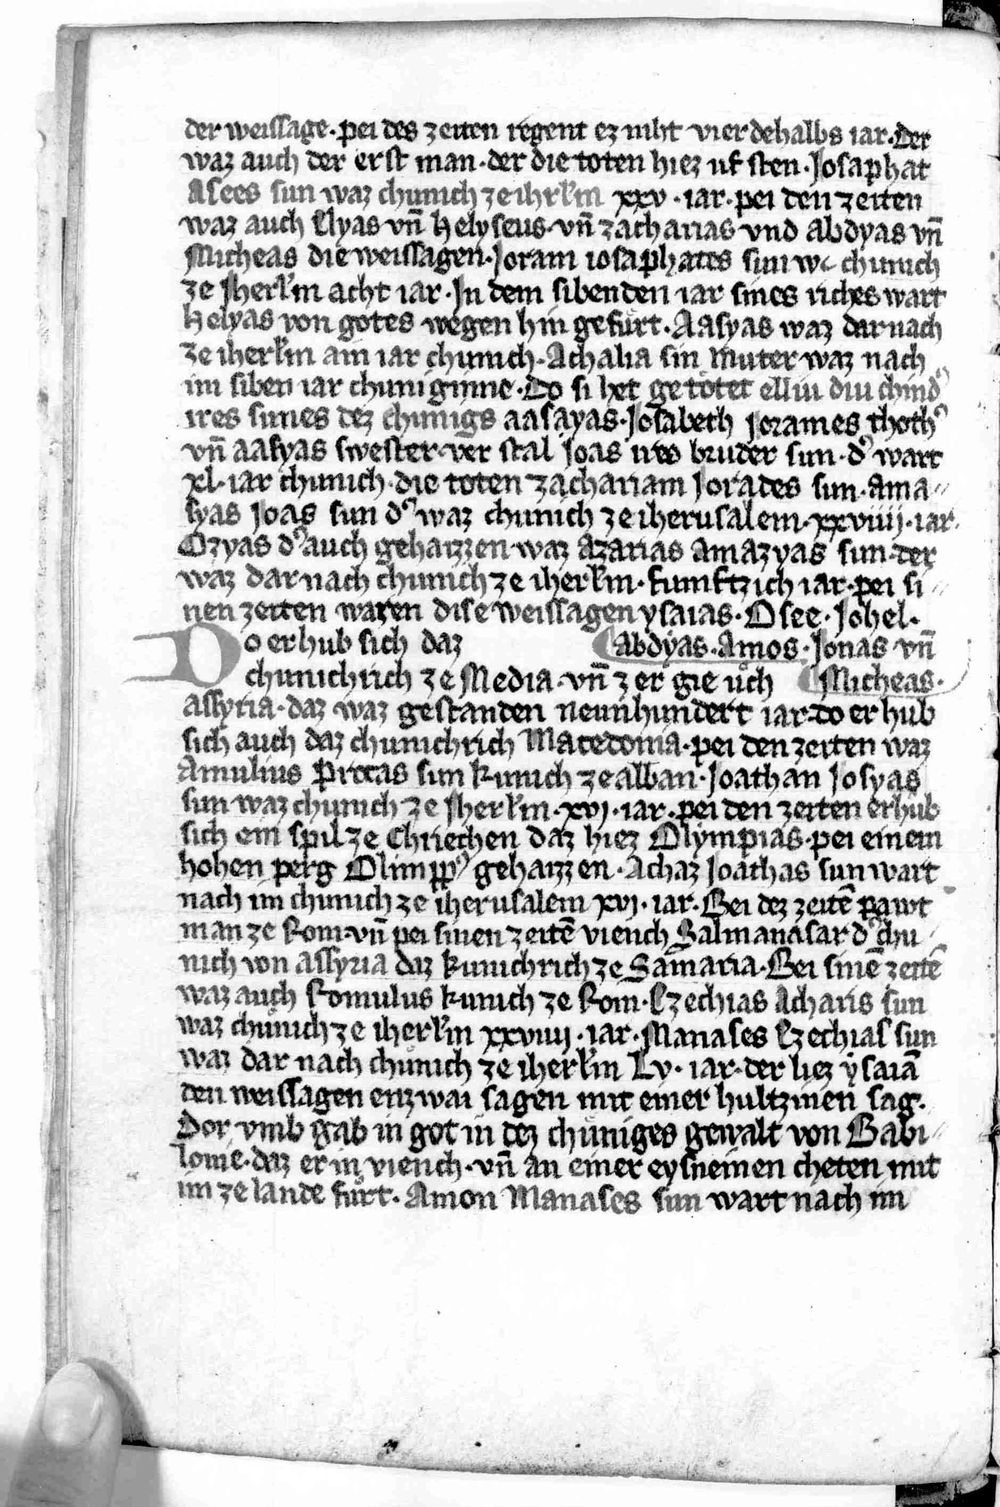 der weissage · pei des zeiten regent ez niht vierdehalbs iar · Der
waz auch der erst man · der die toten hiez uf sten · Josaphat
Asees sun waz chunich ze ihrľm xxv · iar · pei den zeiten
waz auch Elyas vn̄ Helyseus · vn̄ zacharias vnd Abdyas vn̄
Micheas die weissagen · Joram iosaphates sun chunich
ze Jherľm acht iar · In dem sibenden iar sines riches wart
Helyas von gotes wegen hin gefůrt · Aasyas waz darnach
ze iherľm ain iar chunich · Achalia sin Muter waz nach
im siben iar chuniginne · Do si het getötet elliu diu chind
ires sunes dez chunigs aasayas · Josabeth Jorames thoth
vn̄ aasyas swester · ver stal Joas irs bruder sun · d' wart
xl · iar chunich · die toten zachariam Joiades sun · Ama
syas Joas sun d' waz chunich ze iherusalem · xxviiij · iar ·
Ozyas d' auch gehaizzen waz Azarias amazyas sun · der
waz darnach chunich ze iherľm · funftzich iar · pei si
nen zeiten waren dise weissagen ysaias · Osee · Johel ·
Do erhub sich daz abdyas · Amos · Jonas vn̄
chunichrich ze Media · vn̄ zer gie ůch Micheas ·
assyria · daz waz gestanden neunhundert iar · do er hub
sich auch daz chunichrich Macedonia · pei den zeiten waz
Amulius Procas sun kunich ze alban · Joathan Josyas
sun waz chunich ze Jherľm · xvj · iar · pei den zeiten erhub
sich ein spil ze Chriechen daz hiez Olympias · pei einem
hohen perg Olimpp' gehaizzen · Achaz Joathas sun wart
nach im chunich ze iherusalem xvj · iar · Bei dez zeitē pawt
man ze Rom · vn̄ pei sinen zeitē viench Salmanasar d' chu
nich von assyria daz kunichrich ze Samaria · Bei sinē zeitē
waz auch Romulus kunich ze Rom · Ezechias Acharis sun
waz chůnich ze iherľm xxviiij · iar · Manases Ezechias sun
waz dar nach chůnich ze iherľm Lv · iar · der liez ysaiā
den weissagen enzwai sagen mit einer hultzinen sag ·
Dor vmb gab in got in dez chůniges gewalt von Babi
lonie · daz er in viench · vn̄ an einer eysneinen cheten mit
im ze lande fůrt · Amon Manases sun wart nach im